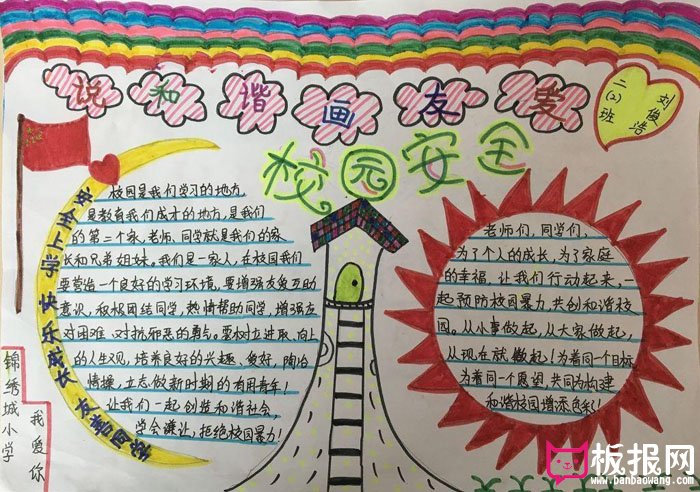 说和谐画友爱
二(2)班
刘俊浩
校园安全
安全上学 快乐成长 友善同学
校园是我们学习的地方,
是教育我们成才的地方,是我们
的第二个家,老师、同学就是我们的家
长和兄弟姐妹。我们是一家人,在校园我们
要营造一个良好的学习环境。要增强友爱互助
意识,积极团结同学,热情帮助同学,增强面
对困难、对抗邪恶的勇气。要树立进取、向上
的人生观,培养良好的兴趣、爱好,陶冶
情操,立志做新时期的有用青年!
让我们一起创造和谐社会,
学会谦让,拒绝校园暴力!
老师们,同学们,
为了个人的成长,为了家庭
的幸福,让我们行动起来,一
起预防校园暴力,共创和谐校
园。从小事做起,从大家做起,
从现在就做起!为着同一个目标,
为着同一个愿望,共同为构建
和谐校园增添色彩!
锦绣城小学
我爱你
板报网
www.banbaowang.com